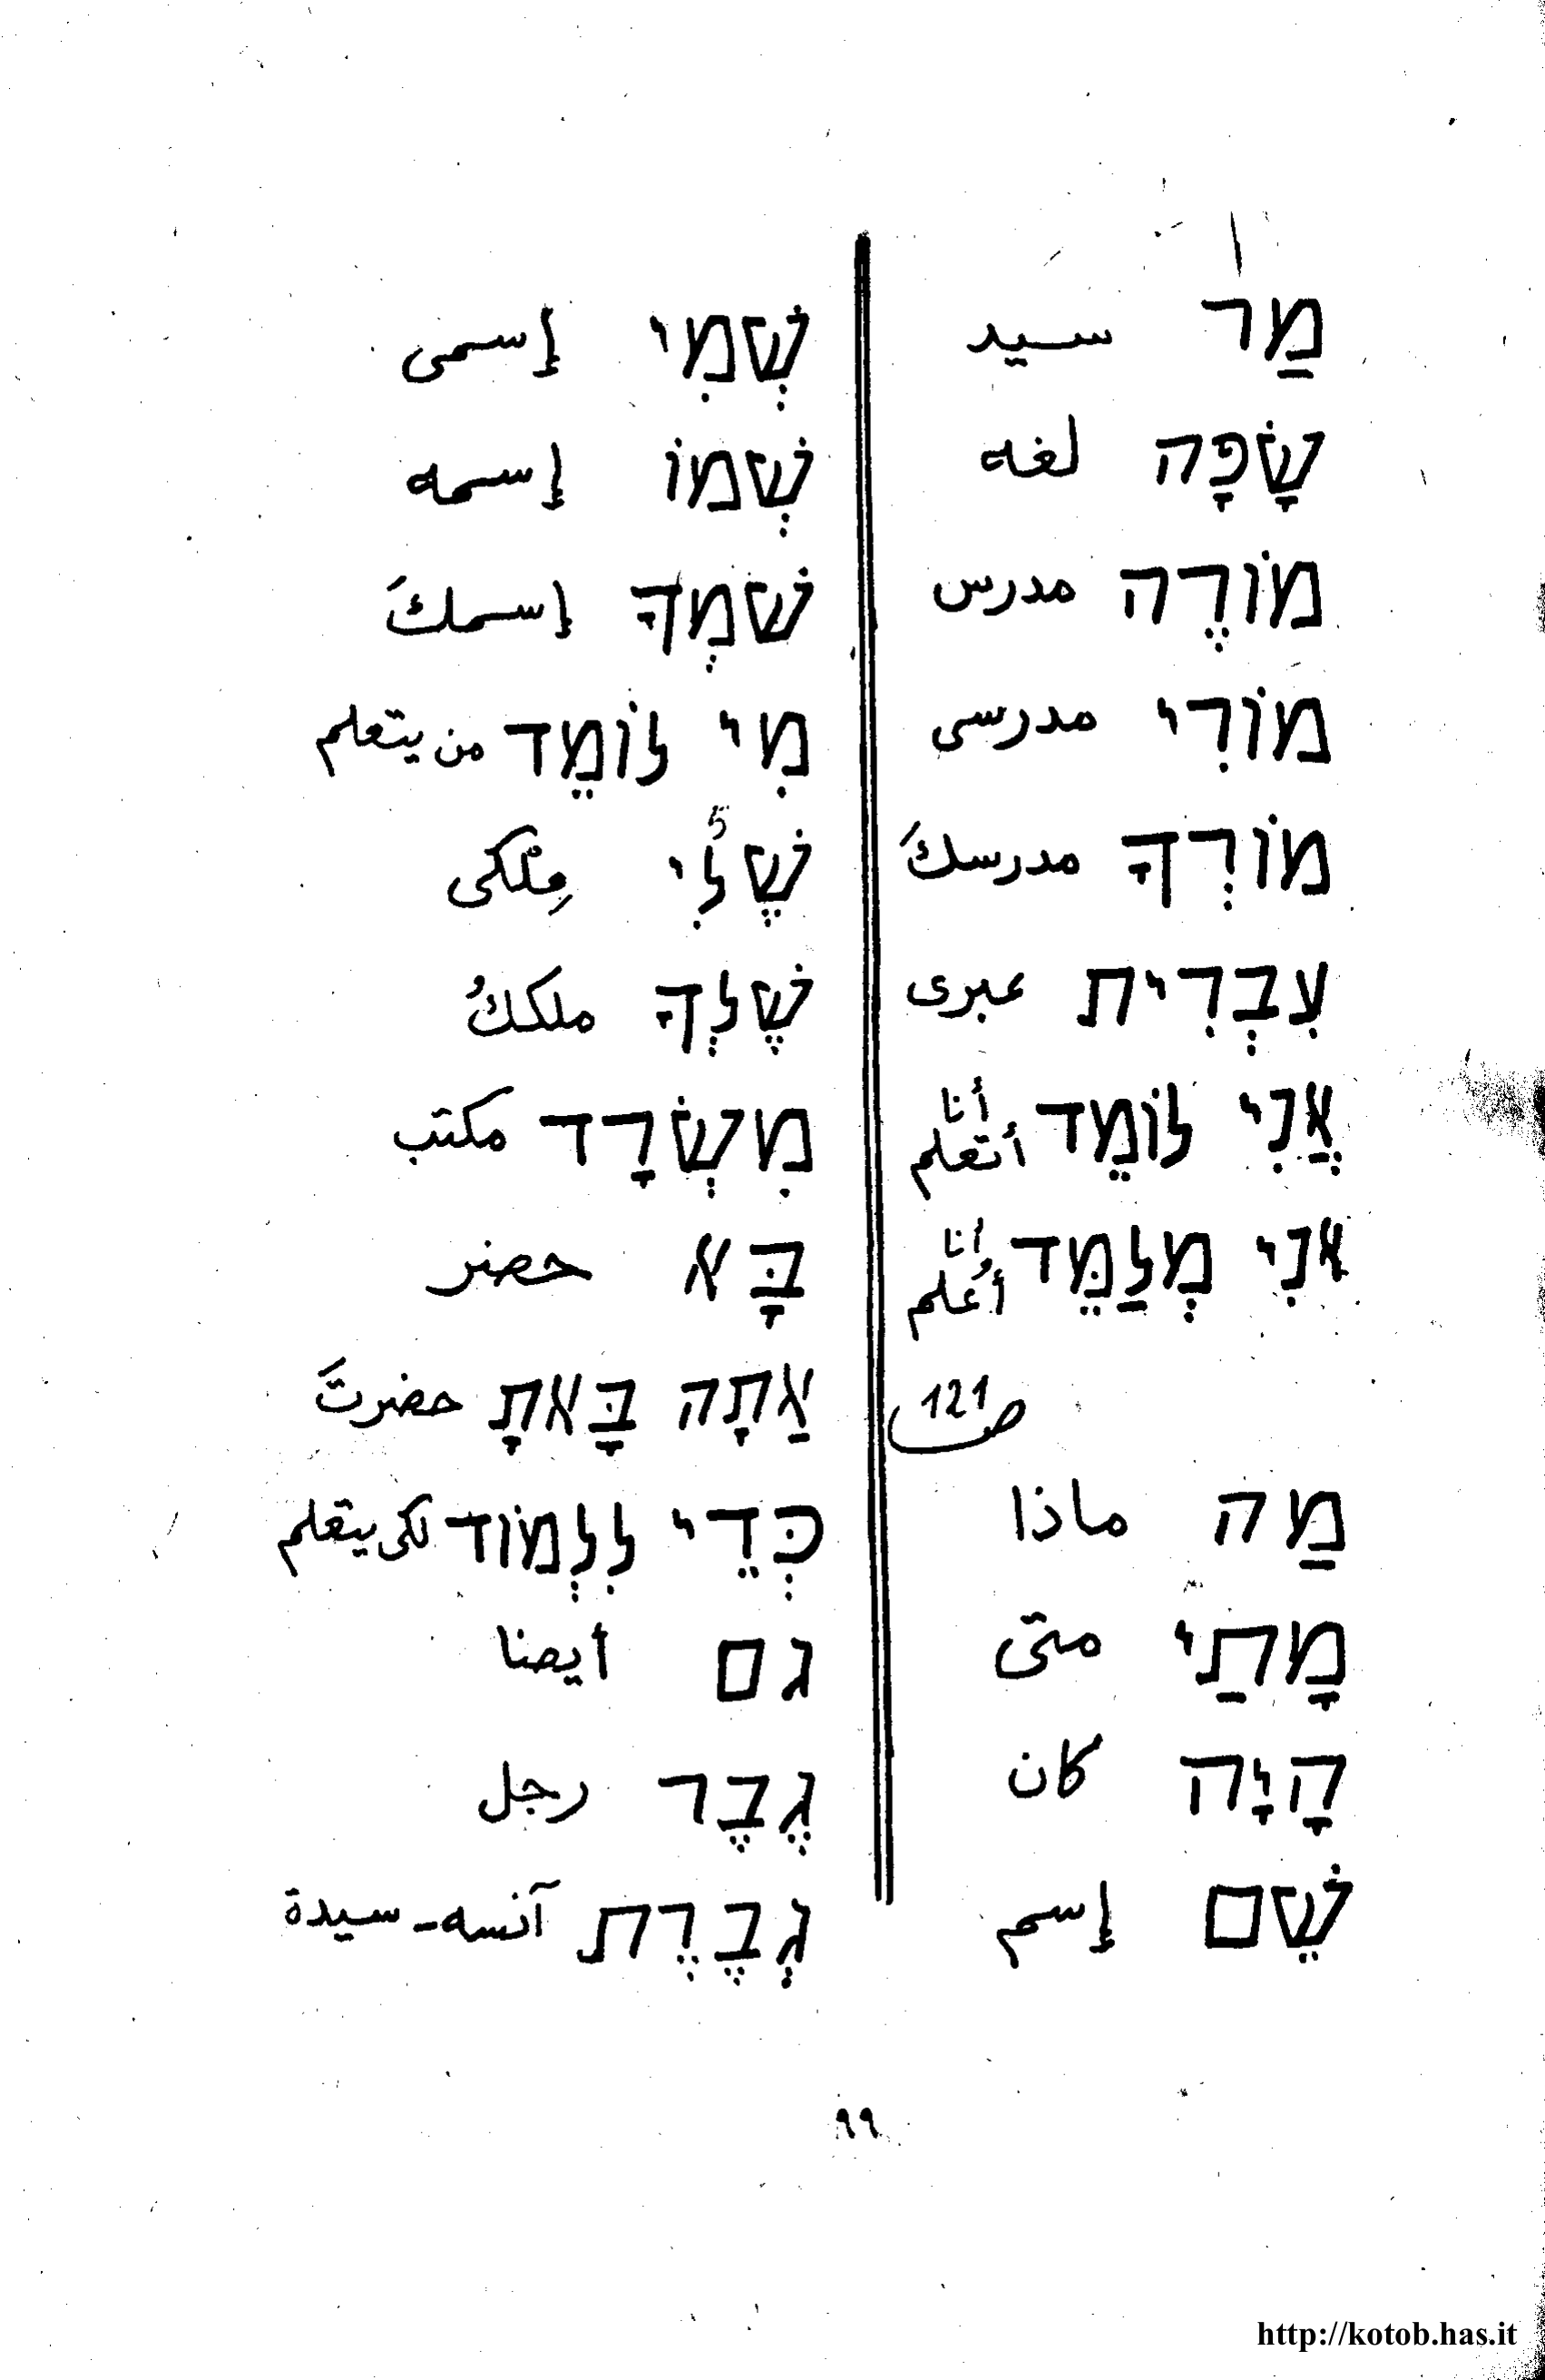 מַר سيد
שָׂפָה لغه
מוֹרֶה مدرس
מוֹרִי مدرسى
מוֹרְךָ مدرسكَ
עִבְרִית عبرى
אֲנִי לוֹמֵד أنا أتعلم
אֲנִי מְלַמֵּד أنا أُعلم
ص 121
מַה ماذا
מָתַי متى
הָיָה كان
שֵׁם إسم
שְׁמִי إسمى
שְׁמוֹ إسمه
שׁמְךָ إسمكَ
מִי לוֹמֵד من يتعلم
שֶׁלִּי مِلْكى
שֶׁלְךָ ملككُ
מִשְׂרָד مكتب
בָּא حضر
אַתָה בָּאתָ حضرتَ
כְּדֵי לִלְמוֹד لكى يتعلم
גם أيضا
גֶבֶר رجل
גְבֶרֶת آنسه - سيدة
٩٩
http://kotob.has.it